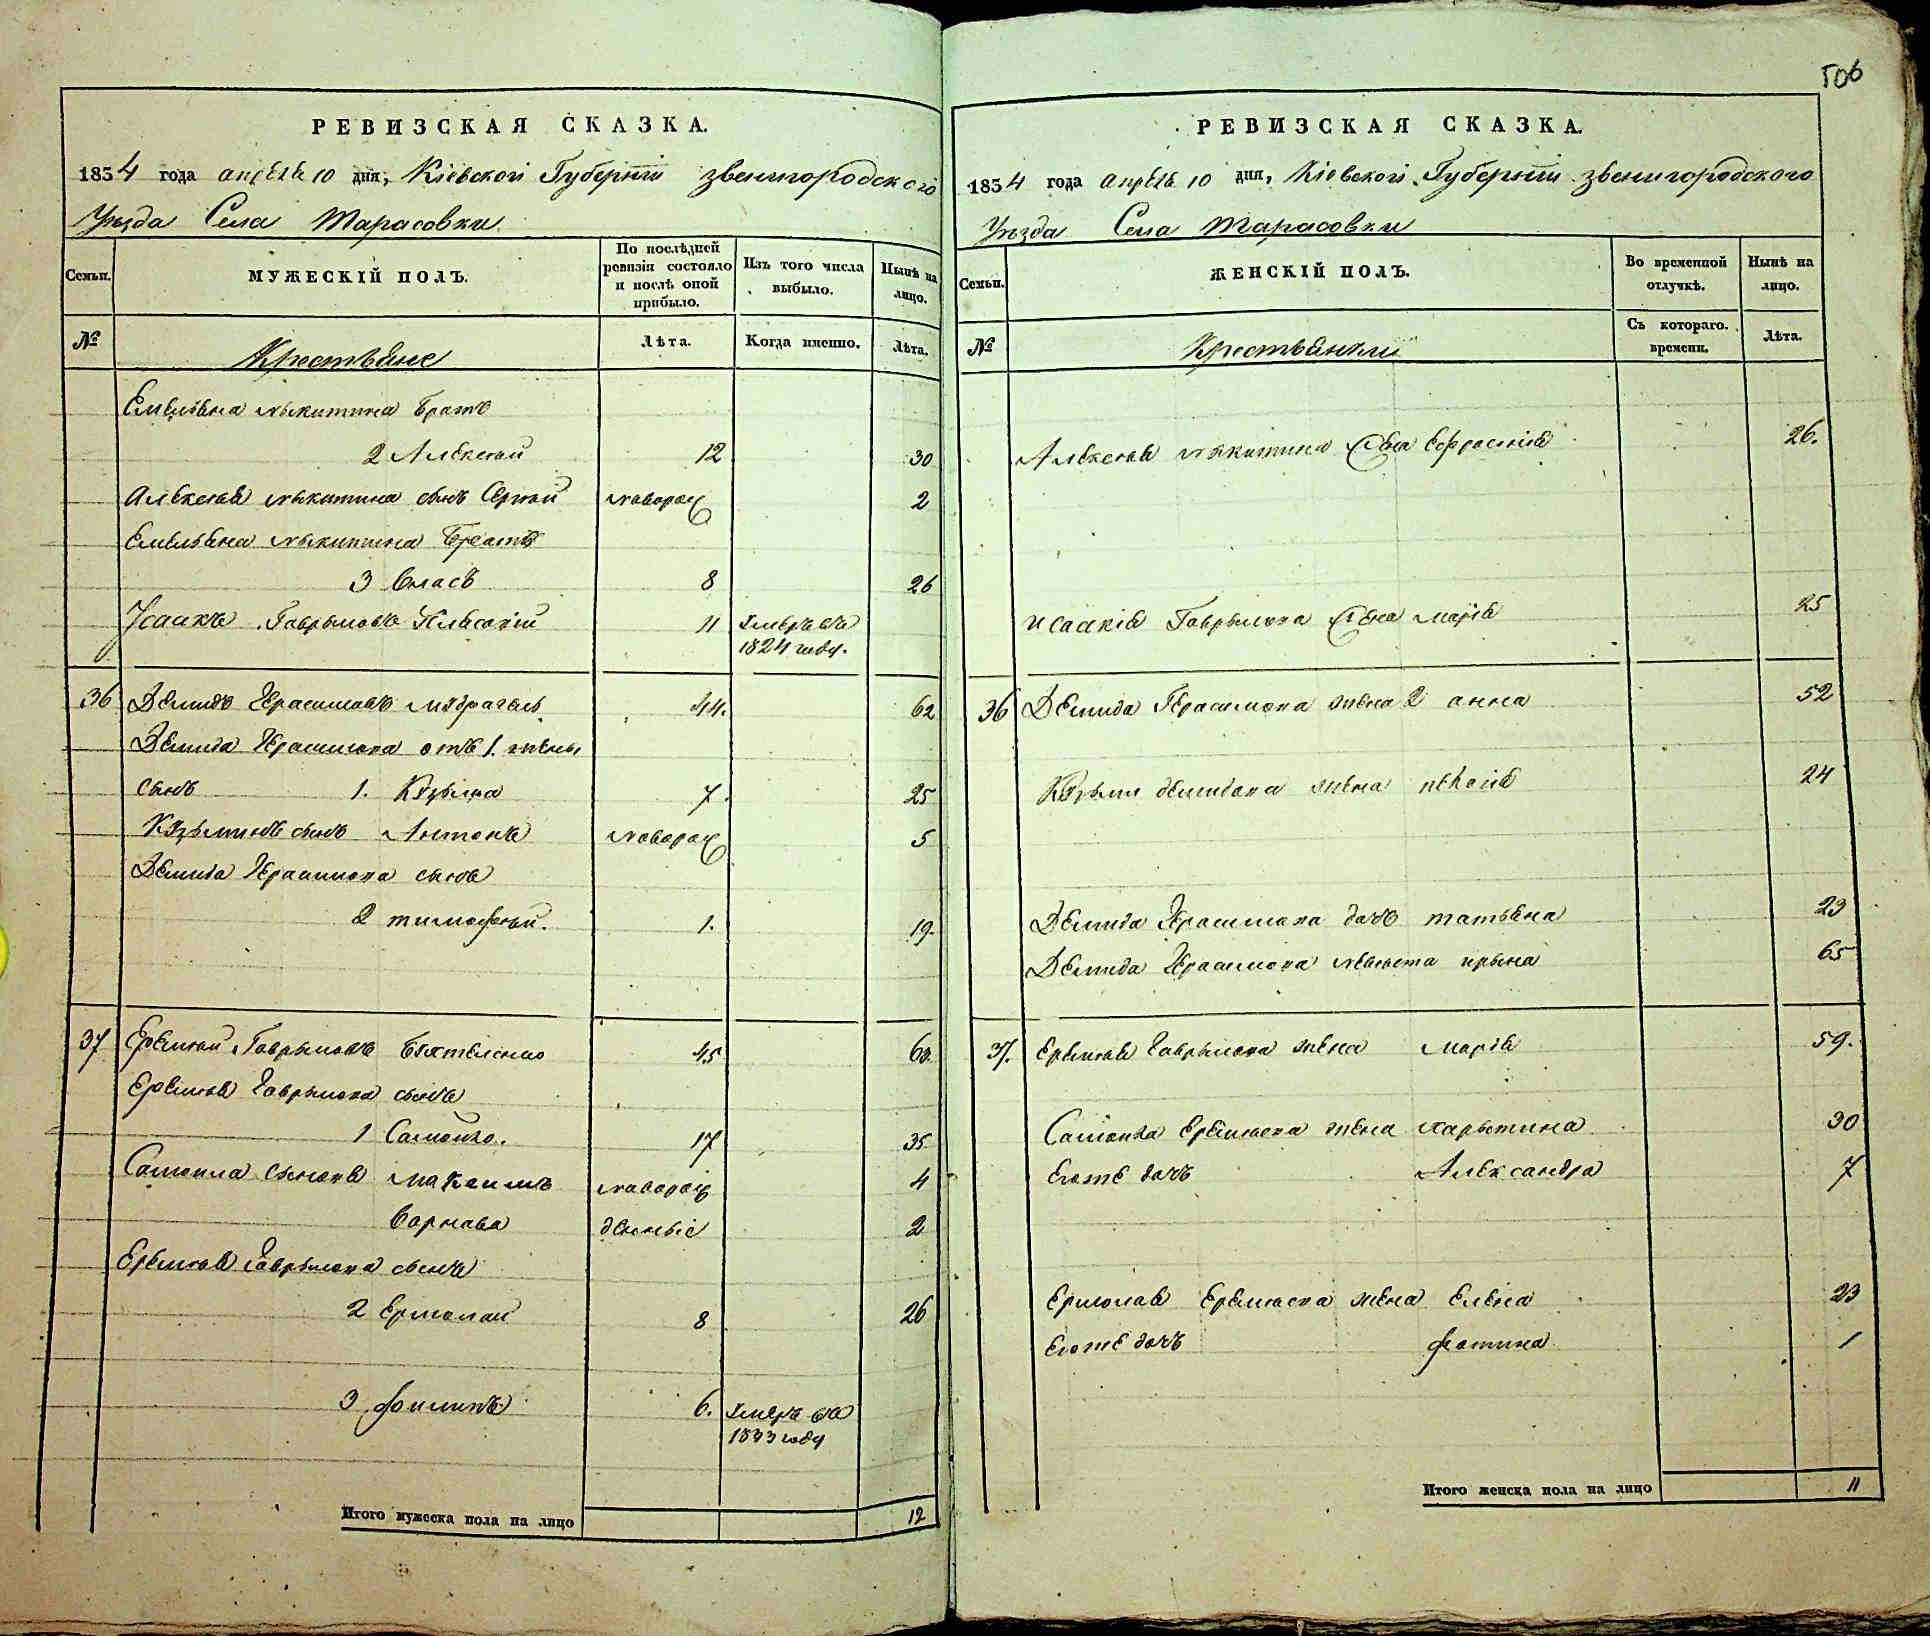 506
РЕВИЗСКАЯ СКАЗКА.
1854 года апреля 10 дня, Кіевской Губерніи звенигородского
Уезда Села Тарасовки
Семьи. МУЖЕСКІЙ ПОЛЪ. По послѣдней ревизіи состояло и послѣ оной прибыло. Изъ того числа выбыло. Нынѣ на лицо.
№ Крестьяне Лѣта. Когда именно. Лѣта.
Емельяна Микитина Братъ
2 Алексей 12 30
Алексея Микитина сынъ Сергей новорож 2
Емельяна Микитина Братъ
3 Власъ 8 26
Гаврыловъ 11 умеръ въ
1824 году.
36 Демидъ Герасимовъ 44. 62
Демида Герасимова отъ 1. жены
сынъ 1. Козьма 7. 25
Козьминъ сынъ Антонъ новорож 5
Демида Герасимова сынъ
2 тимофей. 1. 19.
37 Еремей Гаврыловъ 45 60.
Еремея Гаврылова сынъ
1 Самойло. 17 35.
Самойла сыновя Максимъ новорож 4
Варнава денные 2
Еремея Гаврылова сынъ
2 Ермолай 8 26
3 Филипъ 6. умеръ въ
1833 году
Итого мужеска пола на лицо 12
РЕВИЗСКАЯ СКАЗКА.
1854 года апреля 10 дня, Кіевской Губерніи звенигородского
Уезда Села Тарасовки
Семьи. ЖЕНСКІЙ ПОЛЪ. Во временной отлучкѣ. Нынѣ на лицо.
№ Крестьянки Съ котораго. времени. Лѣта.
Алексея Микитина жена Ефросинія 26.
Исакія Гаврылова жена Марія 25
36 Демида Герасимова жена 2 анна 52
Козьмы демидова жена 24
Демида Герасимова дочь татьяна 23
Демида Герасимова невеста ирына 65
37. Еремея Гаврылова жена Марія 59.
Самойла Еремеева жена 30
Егоже дочь Александра 7
Ермолая Еремеева жена Елена 23
Егоже дочь фотина 1
Итого женска пола на лицо 11